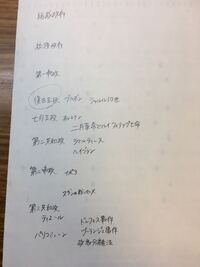 総裁政府
統領政府
第一帝政
復古王政 ブルボン シャルル10世
七月王政 オルレアン
二月革命 ルイフィリップ
第二共和政 ラマルティーヌ
ルイブラン
第二帝政 ナポ3
第三共和政
ティエール ドレフュス事件
パリコミューン ブーランジェ事件
政教分離法